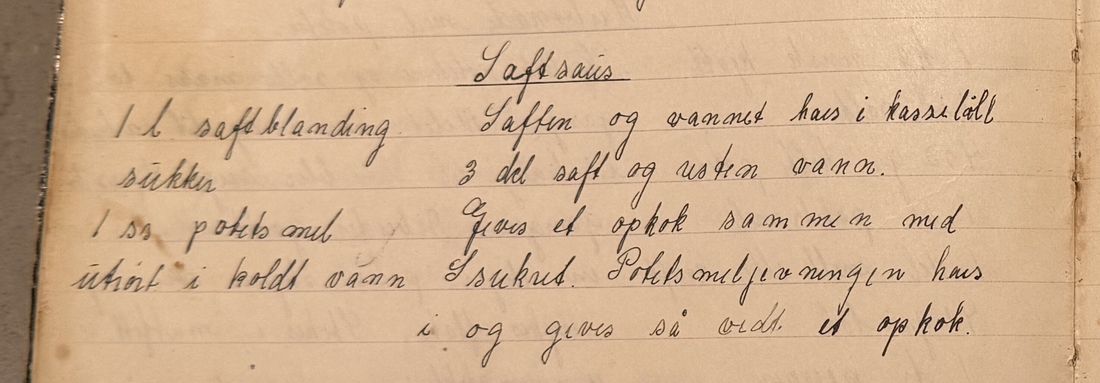 Saftsaus
1 l saftblanding
sukker
1 ss potetsmel
utrørt i koldt vann
Saften og vannet haes i kasseloll
3 del saft og resten vann.
Geves et opkok sammen med
Ssukret. Potetsmeljevningen haes
i og geves så vidt et opkok.